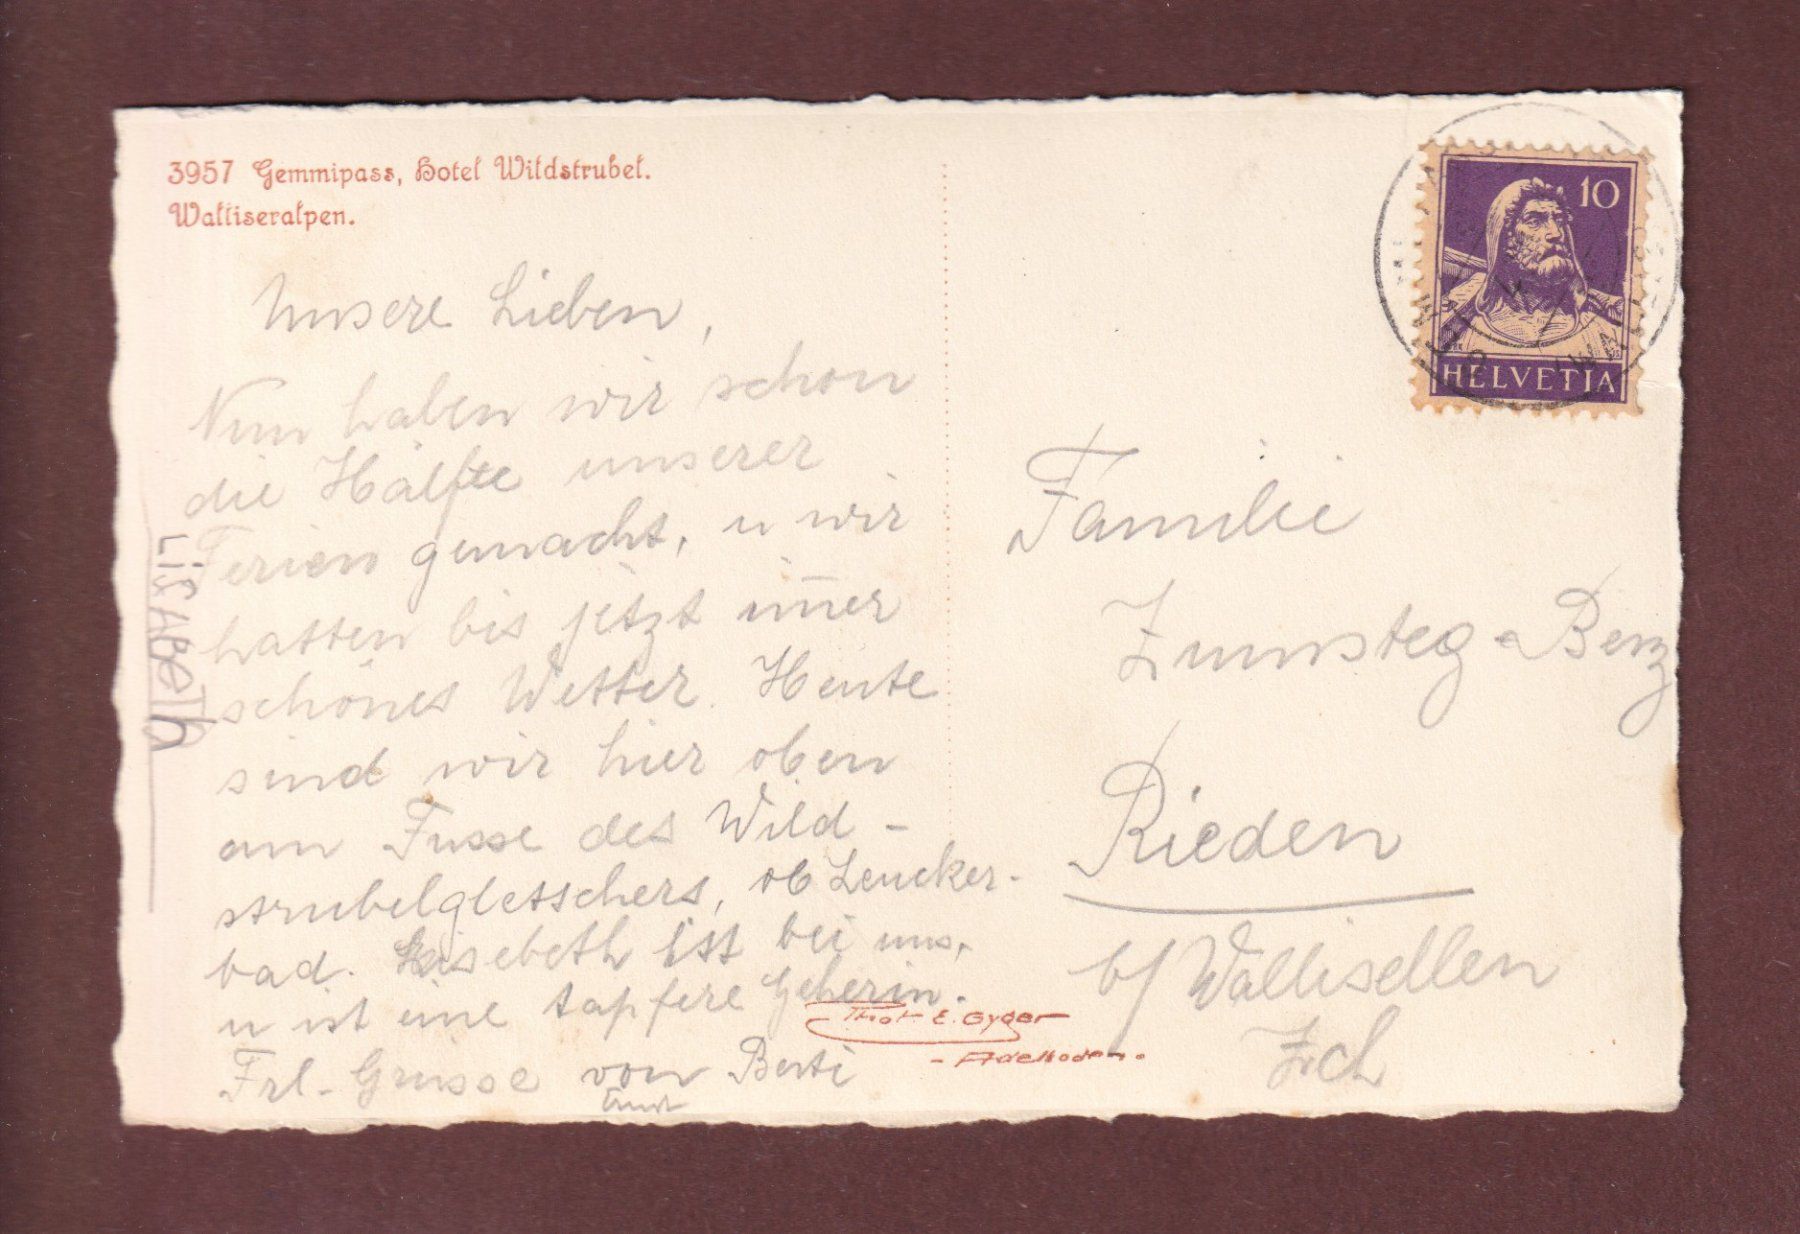 3957 Gemmipass, Hotel Wildstrubel.
Walliseralpen.
Unsere Lieben,
Nun haben wir schon
die Hälfte unserer
Ferien gemacht, u wir
hatten bis jetzt im̅er
schönes Wetter. Heute
sind wir hier oben
am Fusse des Wild-
strubelgletschers, ob Leucker-
bad. Lisebeth ist bei uns,
u ist eine tapfere Geherin.
Frl. Grüsse von Berti
Ernst
LiSABeTh
Phot. E. Gyger
- Adelboden.
10
HELVETIA
Familie
Zumsteg-Benz
Rieden
b/ Wallisellen
Zch